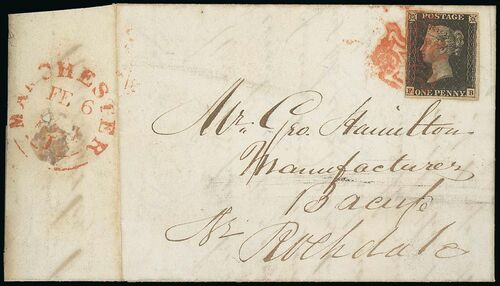 MANCHESTER
FE 6
POSTAGE
F ONE PENNY B
Mr. Geo. Hamilton
Manufacturer
Bacup
Nr
Rochdale